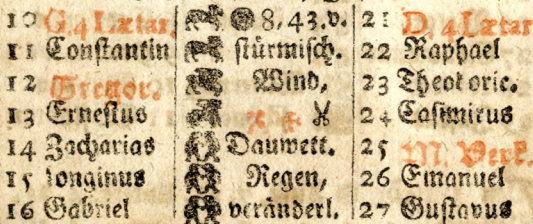 10 G. 4 Lætar. 8, 43. v. 21 D. 4 Lætar
11 Constantin stürmisch. 22 Raphael
12 Gregor. Wind, 23 Theodoric.
13 Ernestus 24 Casimirus
14 Zacharias Dauwett. 25 M. Verk.
15 longinus Regen, 26 Emanuel
16 Gabriel veränderl. 27 Gustavus